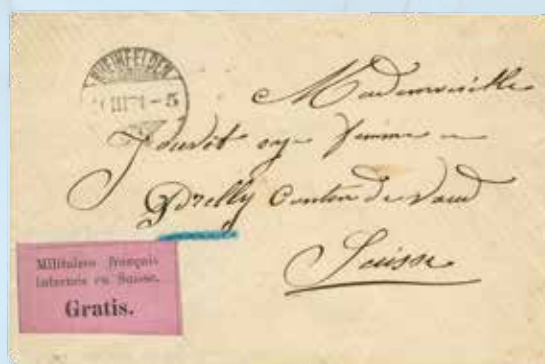 RHEINFELDEN
III 71 - 5
Mademoiselle
Prelly Canton de Vaud
Suisse
Militaires français
internés en Suisse.
Gratis.